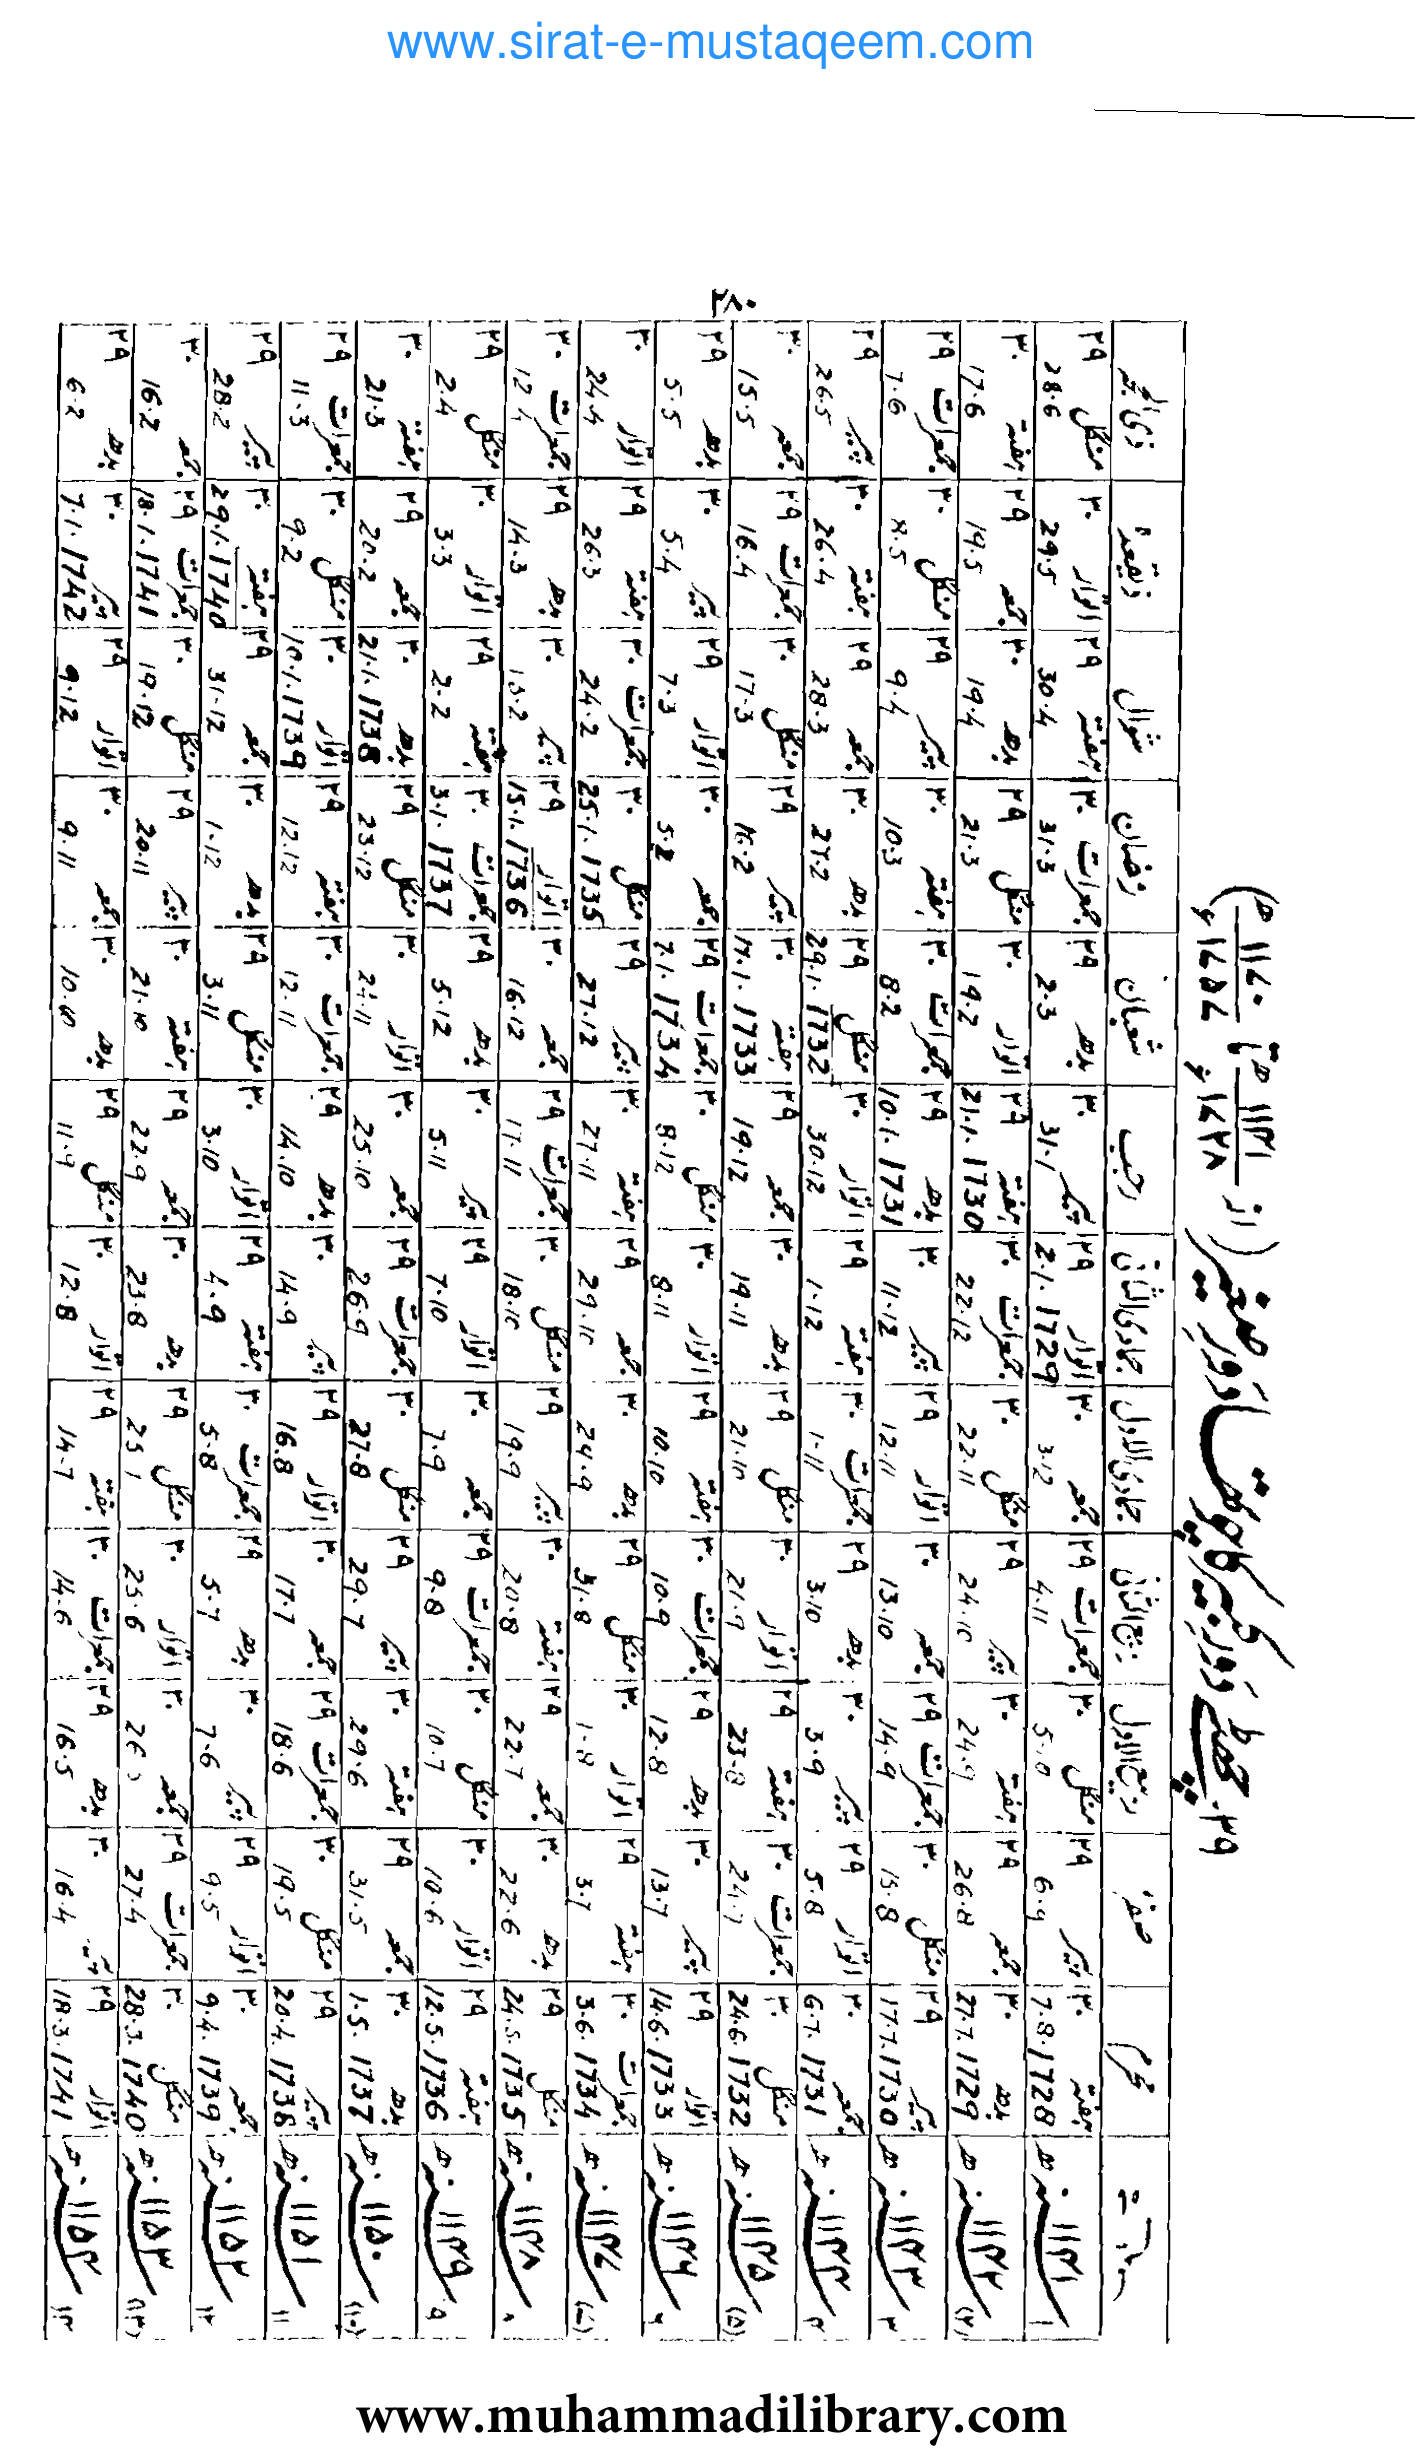 www.sirat-e-mustaqeem.com
۲۸۰
۳۹۔ چھٹے دورِ کبیر کا چوتھا دورِ صغیر (از ۱۱۴۱ھ ۱۷۲۸ء تا ۱۱۷۰ھ ۱۷۵۷ء)
محرم صفر ربیع الاول ربیع الثانی جمادی الاول جمادی الثانی رجب شعبان رمضان شوال ذیقعدہ ذی الحجہ
۱ ۱۱۴۱ھ ہفتہ ۳۰ 7.8.1728 پیر ۲۹ 6.9 منگل ۳۰ جمعرات ۲۹ 4.11 جمعہ ۳۰ 3.12 اتوار ۲۹ 2.1.1729 پیر ۳۰ 31.1 بدھ ۲۹ 2.3 جمعرات ۳۰ 31.3 ہفتہ ۲۹ 30.4 اتوار ۳۰ 29.5 منگل ۲۹ 28.6
(۲) ۱۱۴۲ھ بدھ ۳۰ 27.7.1729 جمعہ ۲۹ 26.8 ہفتہ ۳۰ 24.9 پیر ۲۹ 24.10 منگل ۳۰ 22.11 جمعرات ۳۰ 22.12 ہفتہ ۲۹ 21.1.1730 اتوار ۳۰ 19.2 منگل ۲۹ 21.3 بدھ ۳۰ 19.4 جمعہ ۲۹ 19.5 ہفتہ ۳۰ 17.6
۳ ۱۱۴۳ھ پیر ۲۹ 17.7.1730 منگل ۳۰ 15.8 جمعرات ۲۹ 14.9 جمعہ ۳۰ 13.10 اتوار ۲۹ 12.11 پیر ۳۰ 11.12 بدھ ۲۹ 10.1.1731 جمعرات ۳۰ 8.2 ہفتہ ۳۰ 10.3 پیر ۲۹ 9.4 منگل ۳۰ 8.5 جمعرات ۲۹ 7.6
۴ ۱۱۴۴ھ جمعہ ۳۰ 6.7.1731 اتوار ۲۹ 5.8 پیر ۳۰ 3.9 بدھ ۲۹ 3.10 جمعرات ۳۰ 1.11 ہفتہ ۲۹ 1.12 اتوار ۳۰ 30.12 منگل ۲۹ 29.1.1732 بدھ ۳۰ 27.2 جمعہ ۲۹ 28.3 ہفتہ ۳۰ 26.4 پیر ۲۹ 26.5
(۵) ۱۱۴۵ھ منگل ۳۰ 24.6.1732 جمعرات ۳۰ 24.7 ہفتہ ۲۹ 23.8 اتوار ۳۰ 21.9 منگل ۲۹ 21.10 بدھ ۳۰ 19.11 جمعہ ۲۹ 19.12 ہفتہ ۳۰ 17.1.1733 پیر ۲۹ 16.2 منگل ۳۰ 17.3 جمعرات ۲۹ 16.4 جمعہ ۳۰ 15.5
۶ ۱۱۴۶ھ اتوار ۲۹ 14.6.1733 پیر ۳۰ 13.7 بدھ ۲۹ 12.8 جمعرات ۳۰ 10.9 ہفتہ ۲۹ 10.10 اتوار ۳۰ 8.11 منگل ۳۰ 8.12 جمعرات ۲۹ 7.1.1734 جمعہ ۳۰ 5.2 اتوار ۲۹ 7.3 پیر ۳۰ 5.4 بدھ ۲۹ 5.5
(۷) ۱۱۴۷ھ جمعرات ۳۰ 3.6.1734 ہفتہ ۲۹ 3.7 اتوار ۳۰ 1.8 منگل ۲۹ 31.8 بدھ ۳۰ 29.9 جمعہ ۲۹ 29.10 ہفتہ ۳۰ 27.11 پیر ۲۹ 27.12 منگل ۳۰ 25.1.1735 جمعرات ۳۰ 24.2 ہفتہ ۲۹ 26.3 اتوار ۳۰ 24.4
۸ ۱۱۴۸ھ منگل ۲۹ 24.5.1735 بدھ ۳۰ 22.6 جمعہ ۲۹ 22.7 ہفتہ ۳۰ 20.8 پیر ۲۹ 19.9 منگل ۳۰ 18.10 جمعرات ۲۹ 17.11 جمعہ ۳۰ 16.12 اتوار ۲۹ 15.1.1736 پیر ۳۰ 13.2 بدھ ۲۹ 14.3 جمعرات ۳۰ 12.4
۹ ۱۱۴۹ھ ہفتہ ۲۹ 12.5.1736 اتوار ۳۰ 10.6 منگل ۳۰ 10.7 جمعرات ۲۹ 9.8 جمعہ ۳۰ 7.9 اتوار ۲۹ 7.10 پیر ۳۰ 5.11 بدھ ۲۹ 5.12 جمعرات ۳۰ 3.1.1737 ہفتہ ۲۹ 2.2 اتوار ۳۰ 3.3 منگل ۲۹ 2.4
(۱۰) ۱۱۵۰ھ بدھ ۳۰ 1.5.1737 جمعہ ۲۹ 31.5 ہفتہ ۳۰ 29.6 پیر ۲۹ 29.7 منگل ۳۰ 27.8 جمعرات ۲۹ 26.9 جمعہ ۳۰ 25.10 اتوار ۳۰ 24.11 منگل ۲۹ بدھ ۳۰ 21.1.1738 جمعہ ۲۹ 20.2 ہفتہ ۳۰ 21.3
۱۱ ۱۱۵۱ھ پیر ۲۹ 20.4.1738 منگل ۳۰ 19.5 جمعرات ۲۹ 18.6 جمعہ ۳۰ 17.7 اتوار ۲۹ 16.8 پیر ۳۰ 14.9 بدھ ۲۹ 14.10 جمعرات ۳۰ 12.11 ہفتہ ۲۹ 12.12 اتوار ۳۰ 10.1.1739 منگل ۳۰ 9.2 جمعرات ۲۹ 11.3
۱۲ ۱۱۵۲ھ جمعہ ۳۰ 9.4.1739 اتوار ۲۹ 9.5 پیر ۳۰ 7.6 بدھ ۲۹ 5.7 جمعرات ۳۰ 5.8 ہفتہ ۲۹ 4.9 اتوار ۳۰ 3.10 منگل ۲۹ 3.11 بدھ ۳۰ 1.12 جمعہ ۲۹ 31.12 ہفتہ ۳۰ 29.1.1740 پیر ۲۹ 28.2
(۱۳) ۱۱۵۳ھ منگل ۳۰ 28.3.1740 جمعرات ۲۹ 27.4 جمعہ ۳۰ اتوار ۳۰ 25.6 منگل ۲۹ بدھ ۳۰ 23.8 جمعہ ۲۹ 22.9 ہفتہ ۳۰ 21.10 پیر ۲۹ 20.11 منگل ۳۰ 19.12 جمعرات ۲۹ 18.1.1741 جمعہ ۳۰ 16.2
۱۴ ۱۱۵۴ھ اتوار ۲۹ 18.3.1741 پیر ۳۰ 16.4 بدھ ۲۹ 16.5 جمعرات ۳۰ 14.6 ہفتہ ۲۹ 14.7 اتوار ۳۰ 12.8 منگل ۲۹ 11.9 بدھ ۳۰ 10.10 جمعہ ۳۰ 9.11 اتوار ۲۹ 9.12 پیر ۳۰ 7.1.1742 بدھ ۲۹ 6.2
www.muhammadilibrary.com